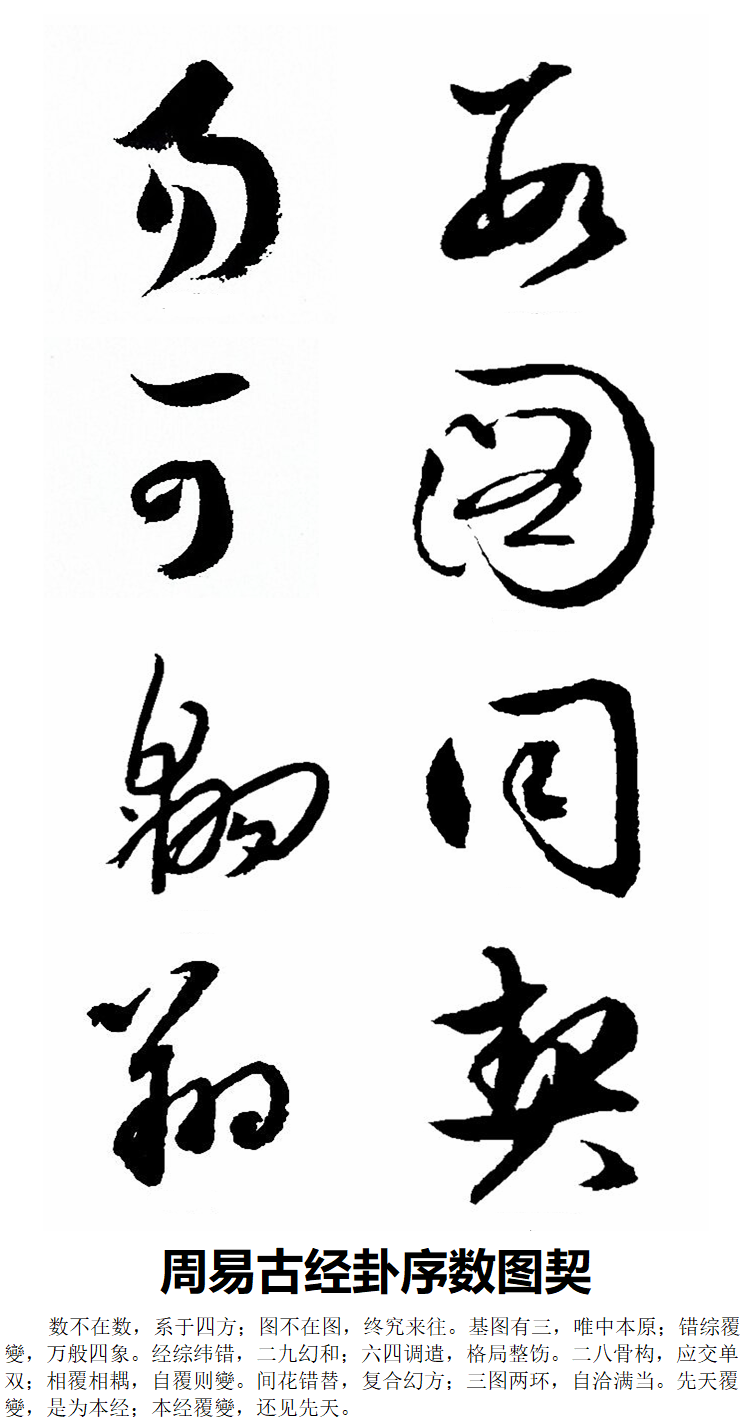 图契
可翱翔
周易古经卦序数图契
数不在数，系于四方；图不在图，终究来往。基图有三，唯中本原；错综覆
變，万般四象。经综纬错，二九幻和；六四调遣，格局整饬。二八骨构，应交单
双；相覆相耦，自覆则變。间花错替，复合幻方；三图两环，自洽满当。先天覆
變，是为本经；本经覆變，还见先天。